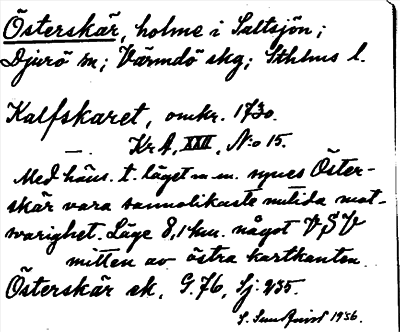 Österskär, holme i Saltsjön;
Djurö sn; Värmdö skg; Sthlms l.
Kalfskaret, omkr. 1730.
— KrA, XXII, N:o 15.
Med häns. t. läget m.m. synes Öster-
skär vara sannolikaste nutida mot-
svarighet. Läge 8,1 km. något VSV
mitten av östra kartkanten.
Österskär ek. G.76, Sj. 235.
1936.